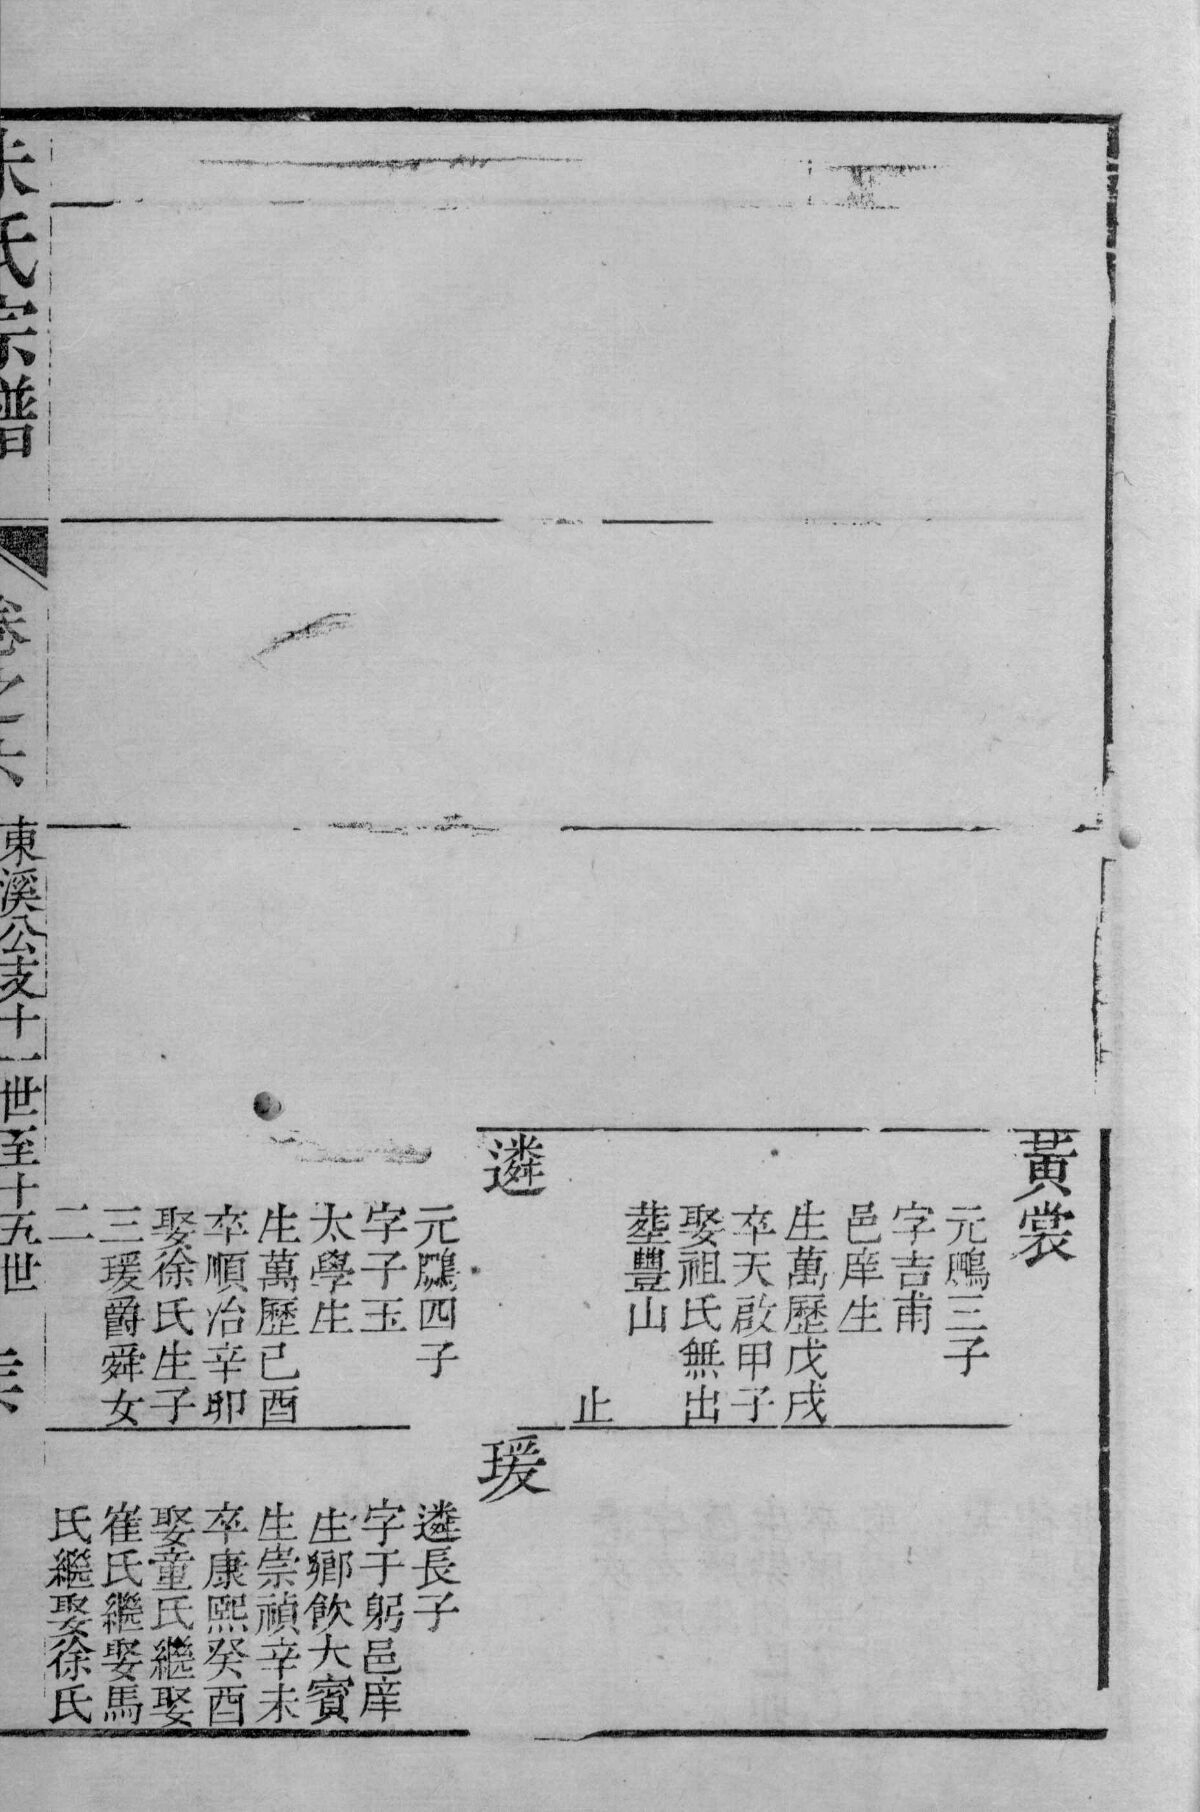 黃裳
元鵰三子
字吉甫
邑庠生
生萬歷戊戌
卒天啟甲子
娶祖氏無出
塟豐山
止
遴
元鵰四子
字子玉
太學生
生萬歷己酉
卒順治辛卯
娶徐氏生子
三瑗爵舜女
二
瑗
遴長子
字于躬邑庠
生鄉飲大賓
生崇禎辛未
卒康熙癸酉
娶童氏繼娶
崔氏繼娶馬
氏繼娶徐氏
朱氏宗譜
卷之六
東溪公支十一世至十五世